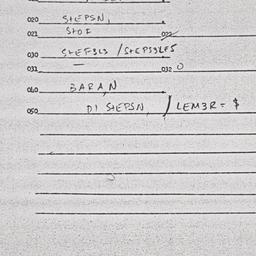 020 STEPSN,
021 STOI 022
030 STEFSLS / STEPSSLES
031 — 032 0
040 BARA,N
050 DI STEPSN, / LEM3R = $